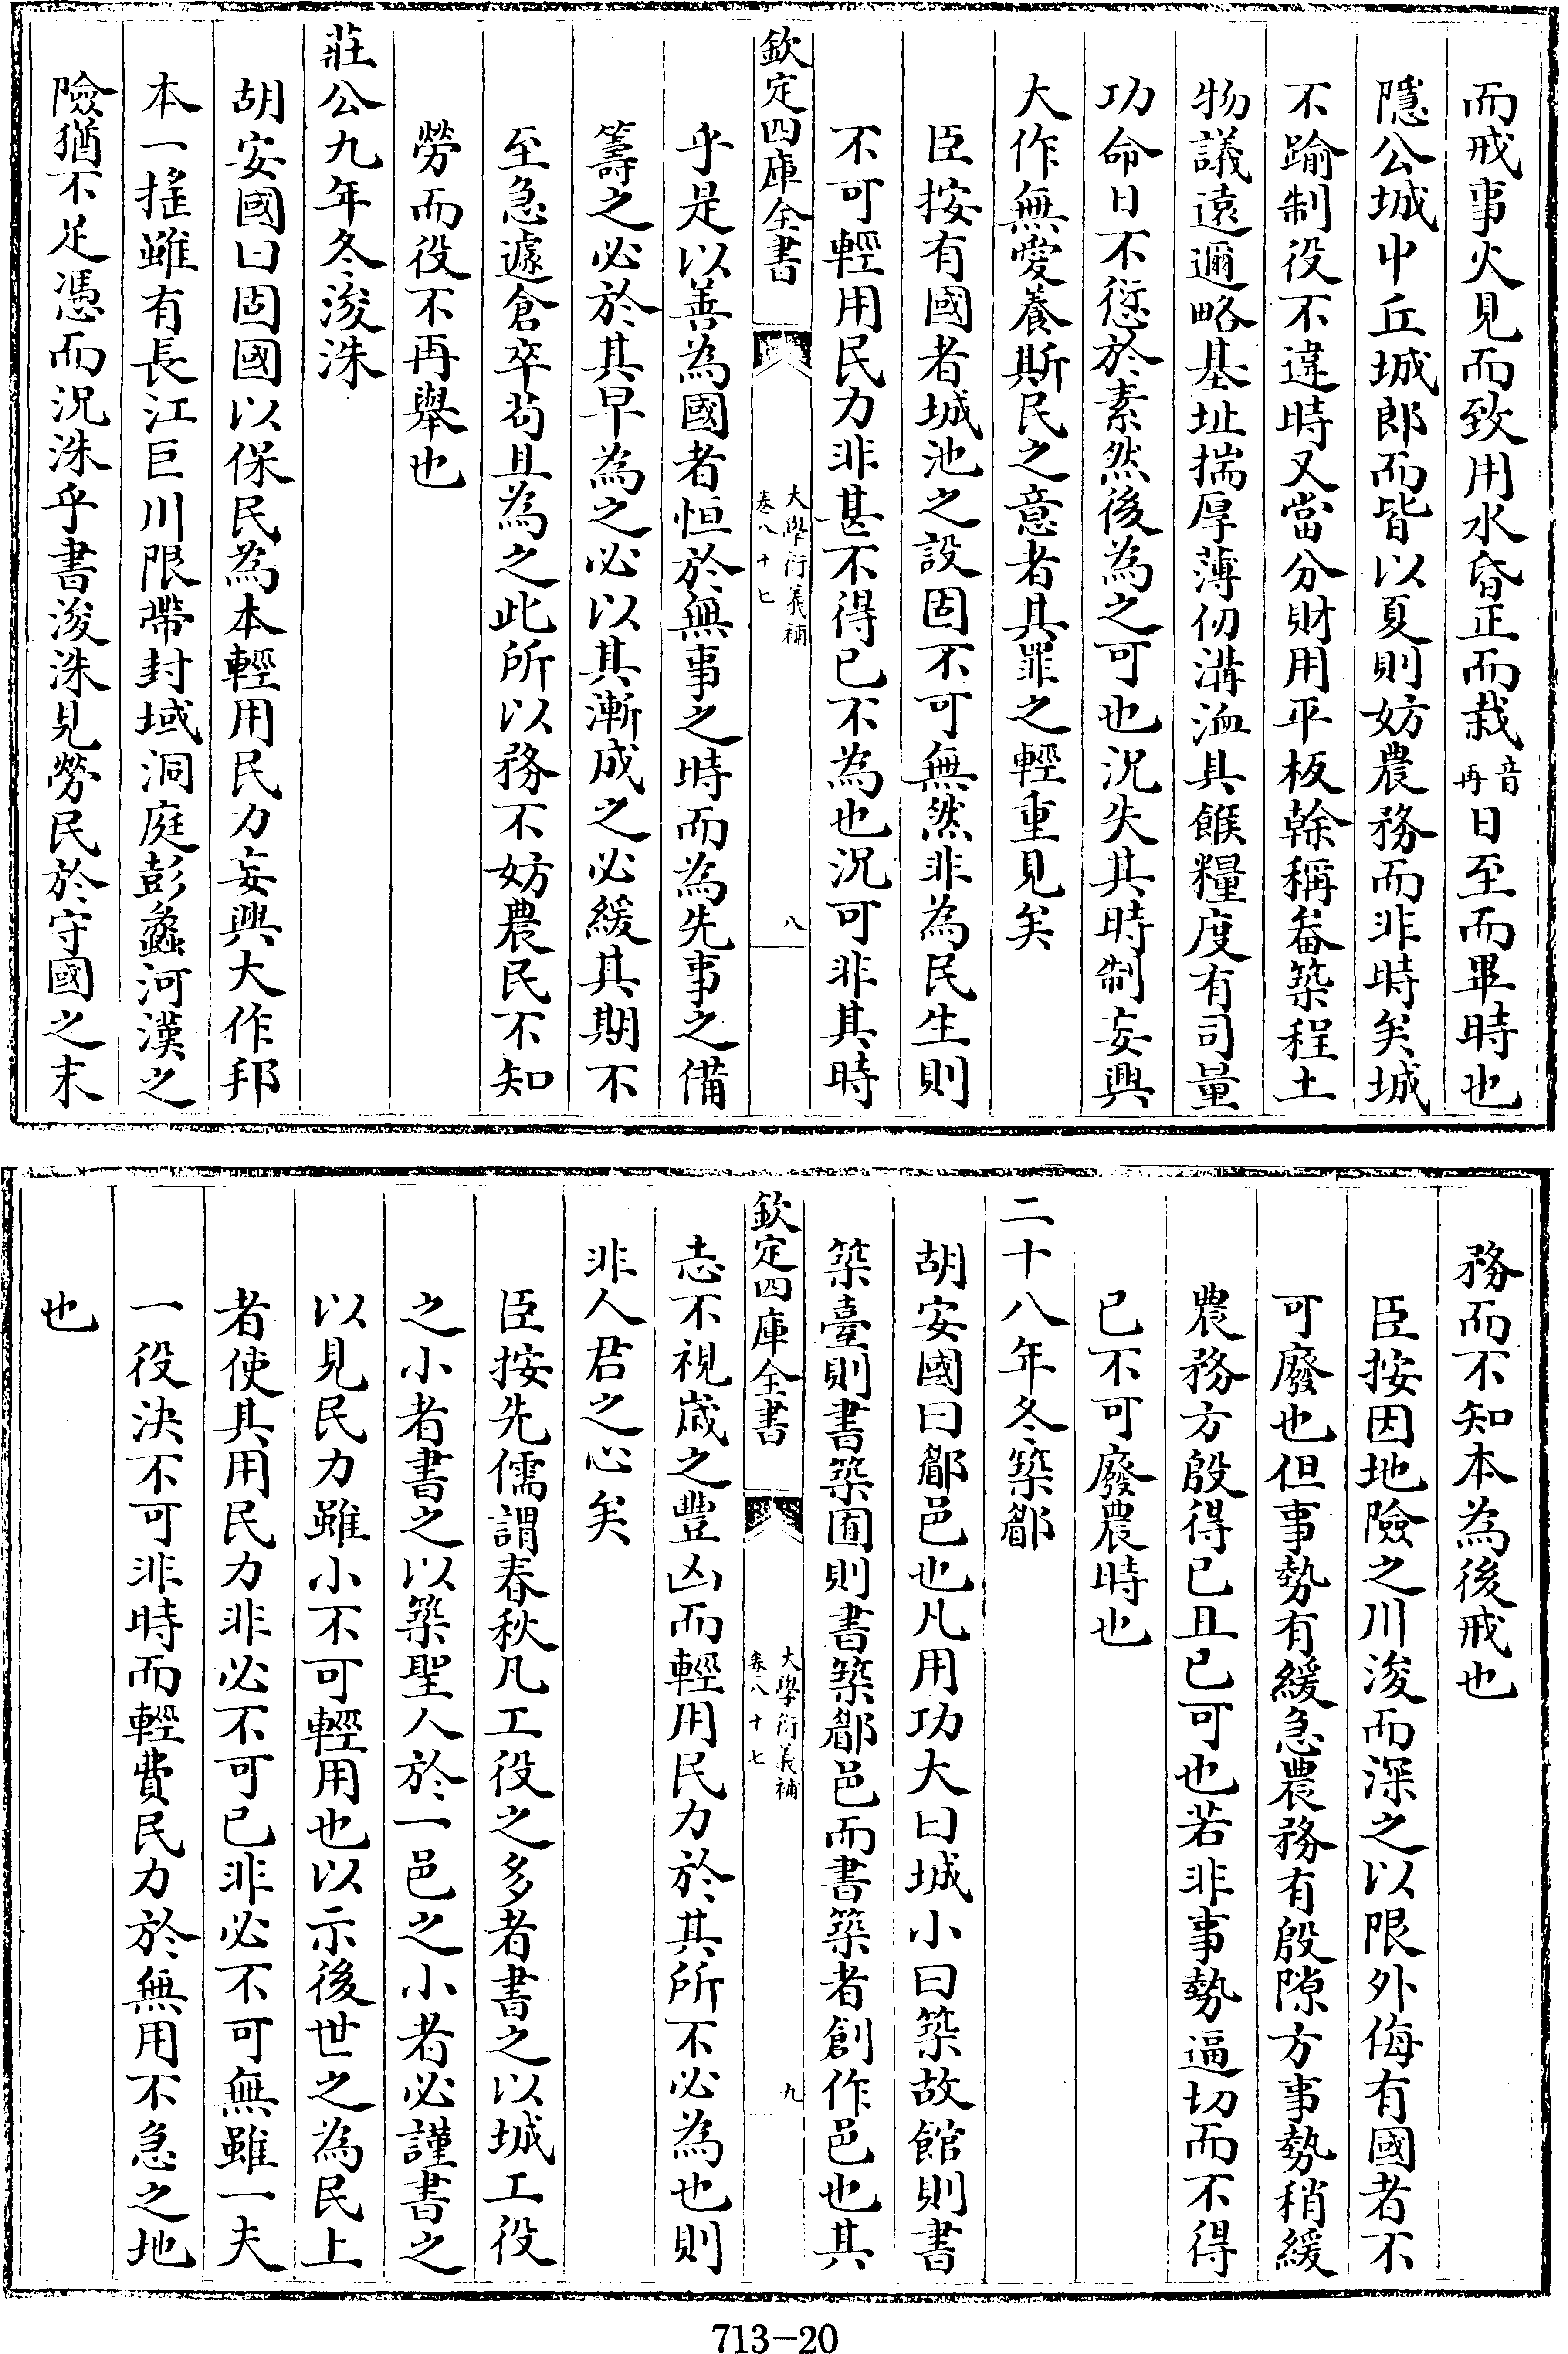 而戒事火見而致用水昏正而栽音再日至而畢時也
隱公城中丘城郎而皆以夏則妨農務而非時矣城
不踰制役不違時又當分財用平板榦稱畚築程土
物議遠邇略基址揣厚薄仞溝洫具餱糧度有司量
功命日不愆於素然後為之可也況失其時制妄興
大作無愛養斯民之意者其罪之輕重見矣
臣按有國者城池之設固不可無然非為民生則
不可輕用民力非甚不得已不為也況可非其時
欽定四庫全書
大學衍義補
卷八十七
八
乎是以善為國者恒於無事之時而為先事之備
籌之必於其早為之必以其漸成之必緩其期不
至急遽倉卒茍且為之此所以務不妨農民不知
勞而役不再舉也
莊公九年冬浚洙
胡安國曰固國以保民為本輕用民力妄興大作邦
本一搖雖有長江巨川限帶封域洞庭彭蠡河漢之
險猶不足憑而況洙乎書浚洙見勞民於守國之末
務而不知本為後戒也
臣按因地險之川浚而深之以限外侮有國者不
可廢也但事勢有緩急農務有殷隙方事勢稍緩
農務方殷得已且已可也若非事勢逼切而不得
已不可廢農時也
二十八年冬築郿
胡安國曰郿邑也凡用功大曰城小曰築故館則書
築臺則書築囿則書築郿邑而書築者創作邑也其
欽定四庫全書
大學衍義補
卷八十七
九
志不視歲之豐凶而輕用民力於其所不必為也則
非人君之心矣
臣按先儒謂春秋凡工役之多者書之以城工役
之小者書之以築聖人於一邑之小者必謹書之
以見民力雖小不可輕用也以示後世之為民上
者使其用民力非必不可已非必不可無雖一夫
一役決不可非時而輕費民力於無用不急之地
也
713-20